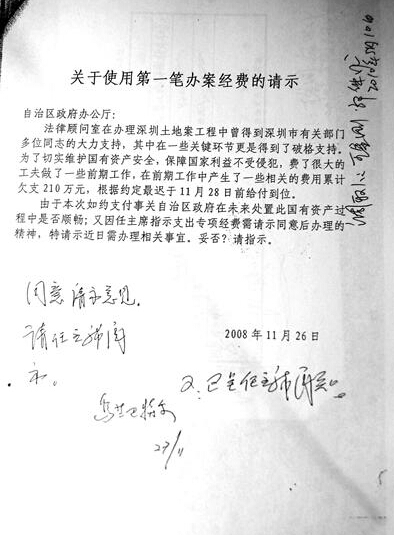 关于使用第一笔办案经费的请示
自治区政府办公厅：
法律顾问室在办理深圳土地案工程中曾得到深圳市有关部门
多位同志的大力支持，其中在一些关键环节更是得到了破格支持。
为了切实维护国有资产安全，保障国家利益不受侵犯，费了很大的
工夫做了一些前期工作，在前期工作中产生了一些相关的费用累计
欠支 210 万元，根据约定最迟于 11 月 28 日前给付到位。
由于本次如约支付事关自治区政府在未来处置此国有资产过
程中是否顺畅；又因任主席指示支出专项经费需请示同意后办理的
精神，特请示近日需办理相关事宜。妥否？请指示。
2008 年 11 月 26 日
同意请示意见。
请任主席阅
示。
27/11